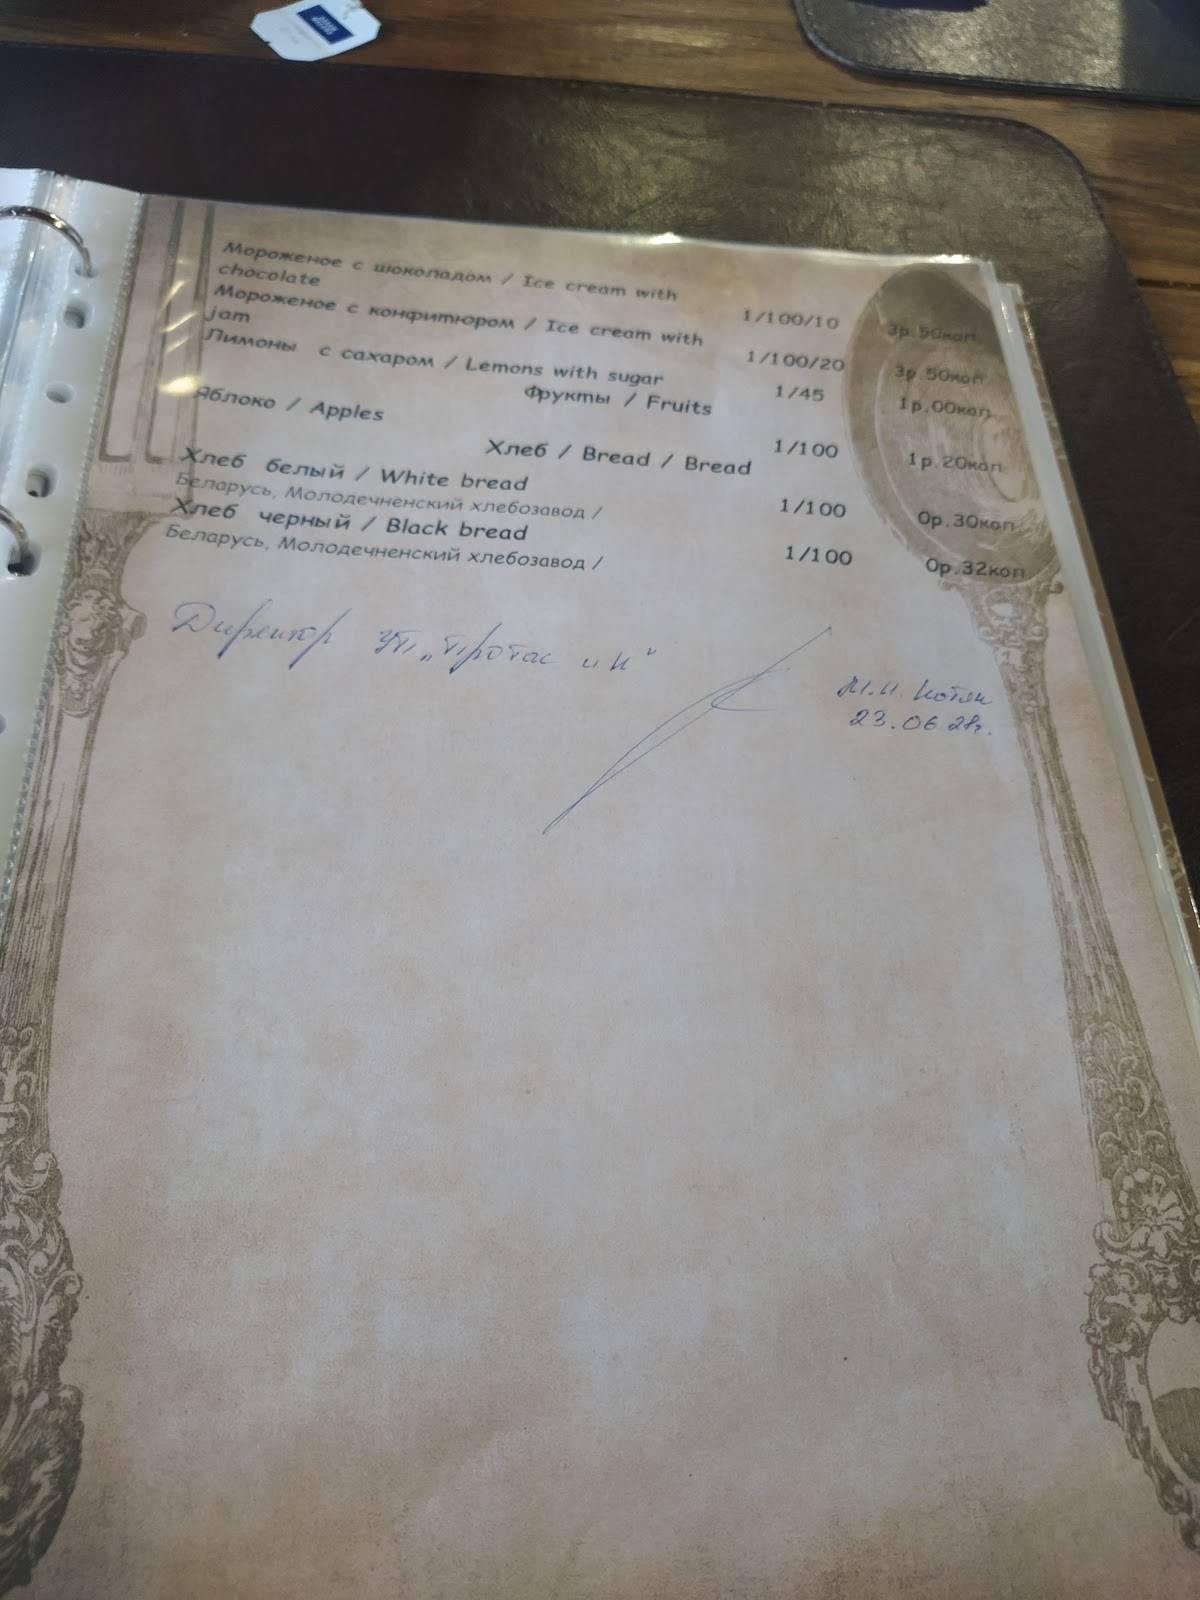 Мороженое с шоколадом / Ice cream with
chocolate 1/100/10 3р.50коп
Мороженое с конфитюром / Ice cream with
jam 1/100/20 3р.50коп
Лимоны с сахаром / Lemons with sugar 1/45 1р.00коп
Фрукты / Fruits
Яблоко / Apples 1/100 1р.20коп
Хлеб / Bread / Bread
Хлеб белый / White bread 1/100 0р.30коп
Беларусь, Молодечненский хлебозавод /
Хлеб черный / Black bread 1/100 0р.32коп
Беларусь, Молодечненский хлебозавод /
Директор УП „Протас и К"
М.И
23.06